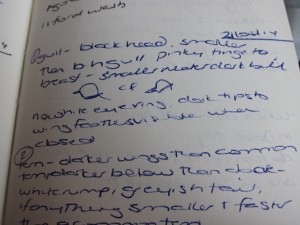 gull - black head. smaller
than bh gull pinky tinge to
breast - smaller neater dark bill
cf
no white eyering, dark tips to
wing feathers visible when
closed
tern - darker wings than common
tern darker below than above -
white rump, greyish tail,
if anything smaller & faster
than common tern